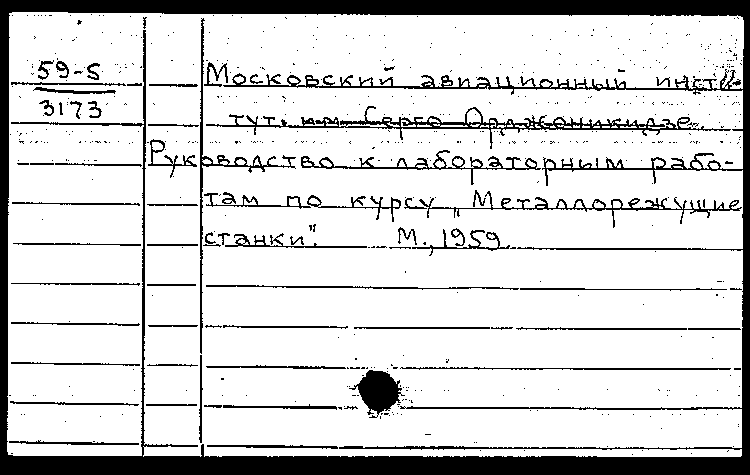 59-5
3173
Московский авиационный инсти-
тут. им Серго Орджоникидзе.
Руководство к лабораторным рабо-
там по курсу „Металлорежущие
станки". М., 1959.